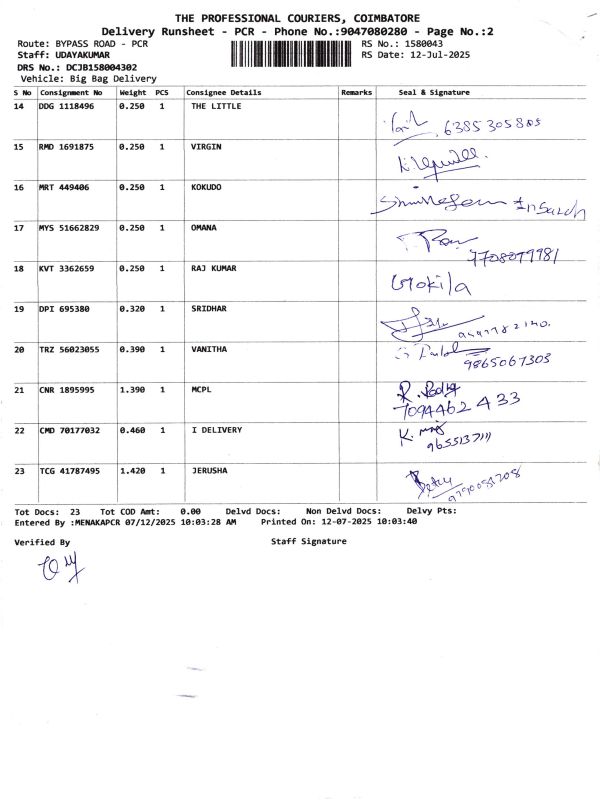 THE PROFESSIONAL COURIERS, COIMBATORE
Delivery Runsheet - PCR - Phone No.:9047080280 - Page No.:2
Route: BYPASS ROAD - PCR RS No.: 1580043
Staff: UDAYAKUMAR RS Date: 12-Jul-2025
DRS No.: DCJB158004302
Vehicle: Big Bag Delivery
S No Consignment No Weight PCS Consignee Details Remarks Seal & Signature
14 DDG 1118496 0.250 1 THE LITTLE
15 RMD 1691875 0.250 1 VIRGIN
16 MRT 449406 0.250 1 KOKUDO
17 MYS 51662829 0.250 1 OMANA
18 KVT 3362659 0.250 1 RAJ KUMAR Gokila
19 DPI 695380 0.320 1 SRIDHAR
20 TRZ 56023055 0.390 1 VANITHA 9865067303
21 CNR 1895995 1.390 1 MCPL 7094462433
22 CMD 70177032 0.460 1 I DELIVERY
23 TCG 41787495 1.420 1 JERUSHA
Tot Docs: 23 Tot COD Amt: 0.00 Delvd Docs: Non Delvd Docs: Delvy Pts:
Entered By :MENAKAPCR 07/12/2025 10:03:28 AM Printed On: 12-07-2025 10:03:40
Verified By Staff Signature